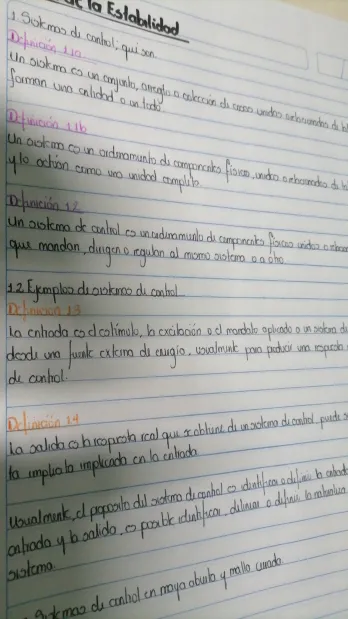 de la Estabilidad
1. Sistemas de control: qué son.
Definición 1.1a.
Un sistema es un conjunto, arreglo o colección de cosas unidas o relacionadas de
forman una entidad o un todo.
Definición 1.1b
Un sistema es un ordenamiento de componentes físicos, unidos o relacionados de
y/o actúan como una unidad completa.
Definición 1.2
Un sistema de control es un ordenamiento de componentes físicos unidos o
que mandan, dirigen o regulan al mismo sistema o a otro.
1.2 Ejemplos de sistemas de control
Definición 1.3
La entrada es el estímulo, la excitación o el mandato aplicado a un sistema de
desde una fuente externa de energía, usualmente para producir una respuesta
de control.
Definición 1.4
La salida es la respuesta real que se obtiene de un sistema de control, puede
la implica la implicada en la entrada.
Usualmente, el proposito del sistema de control es identificar o definir la
entrada y la salida, es posible identificar, delinear o definir la naturaleza
sistema.
Sistemas de control en maya abierta y malla cerrada.